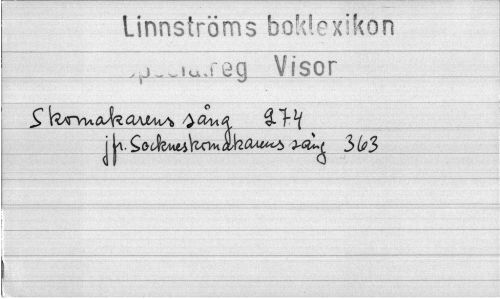 Linnströms boklexikon
Specialreg Visor
Skomakarens sång 274
jfr. Sockneskomakarens sång 363